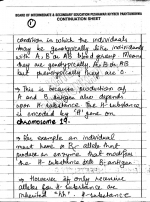 BOARD OF INTERMEDIATE & SECONDARY EDUCATION
CONTINUATION SHEET
1
condition in which the individuals
may be genotypically like individuals
with A, B or AB blood group. Means
they are genotypically A, B or AB
but phenotypically they are O.
→ This is because production of
A and B antigen also depends
upon H-substance. The H-substance
is encoded by "H" gene on
chromosome 19.
→ For example an individual
must have a B- allele that
produce an enzyme that modifies
the H-substance into B antigen.
→ However if only recessive
alleles for H-substance are
inherited "hh", H-substance